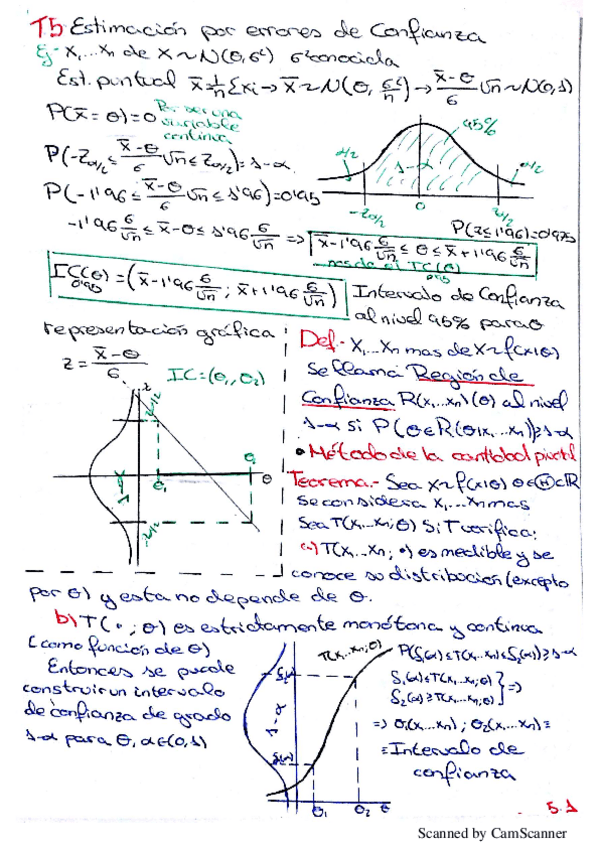 T5 Estimación por errores de Confianza
Ej- x₁,...xₙ de x~N(θ,σ²) σ² conocida
Est. puntual x̄=1/n Σxi → x̄~N(θ, σ²/n) → (x̄-θ)/σ √n ~N(0,1)
P(x̄=θ)=0 Por ser una variable continua
95%
α/2
1-α
α/2
P(-Zα/2 ≤ (x̄-θ)/σ √n ≤ Zα/2)=1-α
-Zα/2
0
Zα/2
P(-1'96 ≤ (x̄-θ)/σ √n ≤ 1'96)=0'95
P(Z≤1'96)=0'975
-1'96 σ/√n ≤ x̄-θ ≤ 1'96 σ/√n => x̄-1'96 σ/√n ≤ θ ≤ x̄+1'96 σ/√n
IC(θ)0'95 = (x̄-1'96 σ/√n ; x̄+1'96 σ/√n) Intervalo de Confianza
al nivel 95% para θ
representación gráfica:
z = (x̄-θ)/σ
IC=(θ₁,θ₂)
z
α/2
1-α
θ₁
θ
α/2
Def.- x₁,...xₙ mas de x~f(x|θ)
se llama Región de
Confianza R(x₁,...xₙ)(θ) al nivel
1-α si P(θ∈R(θ|x₁,...xₙ))≥1-α
• Método de la cantidad pivotal
Teorema.- Sea x~f(x|θ) θ∈Θ⊂ℝ
se considera x₁,...xₙ mas
Sea T(x₁,...xₙ;θ) Si T verifica:
a) T(x₁,...xₙ; •) es medible y se
conoce su distribución (excepto
por θ) y esta no depende de θ.
b) T(•;θ) es estrictamente monótona y continua
(como función de θ)
Entonces se puede
construir un intervalo
de confianza de grado
1-α para θ, α∈(0,1)
T(x₁...xₙ;θ)
1-α
θ₁
θ₂
θ
P(δ₁(α)≤T(x₁...xₙ)≤δ₂(α))≥1-α
δ₁(α)≤T(x₁,...xₙ;θ)
δ₂(α)≥T(x₁,...xₙ;θ) } =>
=> θ₁(x₁,...xₙ) ; θ₂(x₁,...xₙ)≡
≡Intervalo de
confianza
5.1
Scanned by CamScanner